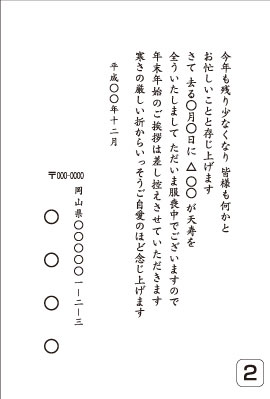 今年も残り少なくなり 皆様も何かと
お忙しいことと存じ上げます
さて 去る〇月〇日に △〇〇 が天寿を
全ういたしまして ただいま服喪中でございますので
年末年始のご挨拶は差し控えさせていただきます
寒さの厳しい折からいっそうご自愛のほど念じ上げます
平成〇〇年十二月
〒000-0000
岡山県〇〇〇〇〇一−二−三
〇〇〇〇
2